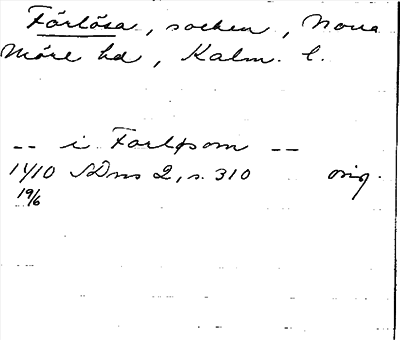 Förlösa, socken, Norra
Möre hd, Kalm. l.
-- i Forløsom --
1410 SDns 2, s. 310 orig.
19/6